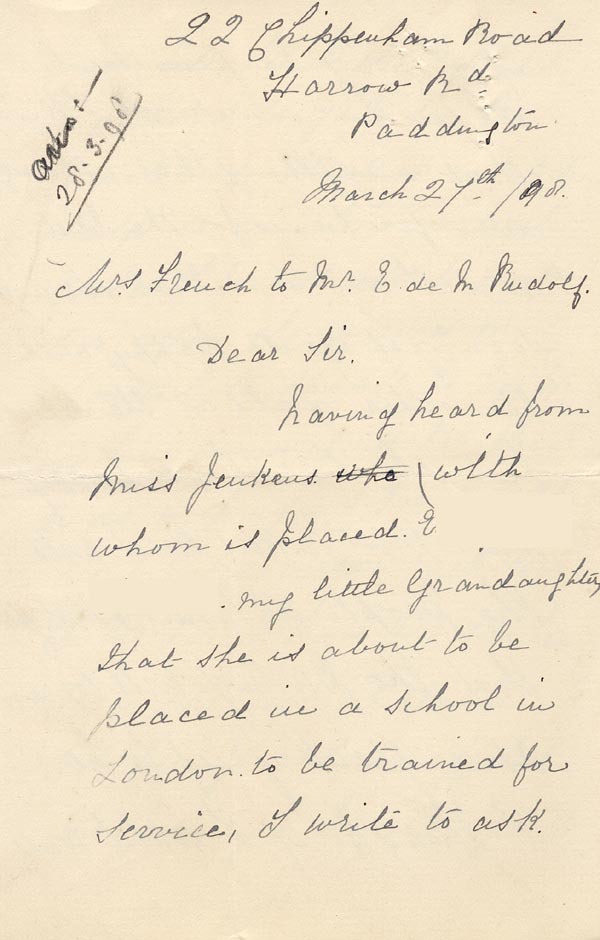 22 Chippenham Road
Harrow Rd
Paddington
March 27th /98.
28.3.98
Mrs French to Mr. E de M Rudolf.
Dear Sir.
having heard from
Miss Jenkens. who (with
whom is placed. E
my little Grandaughter,
that she is about to be
placed in a school in
London. to be trained for
service, I write to ask.